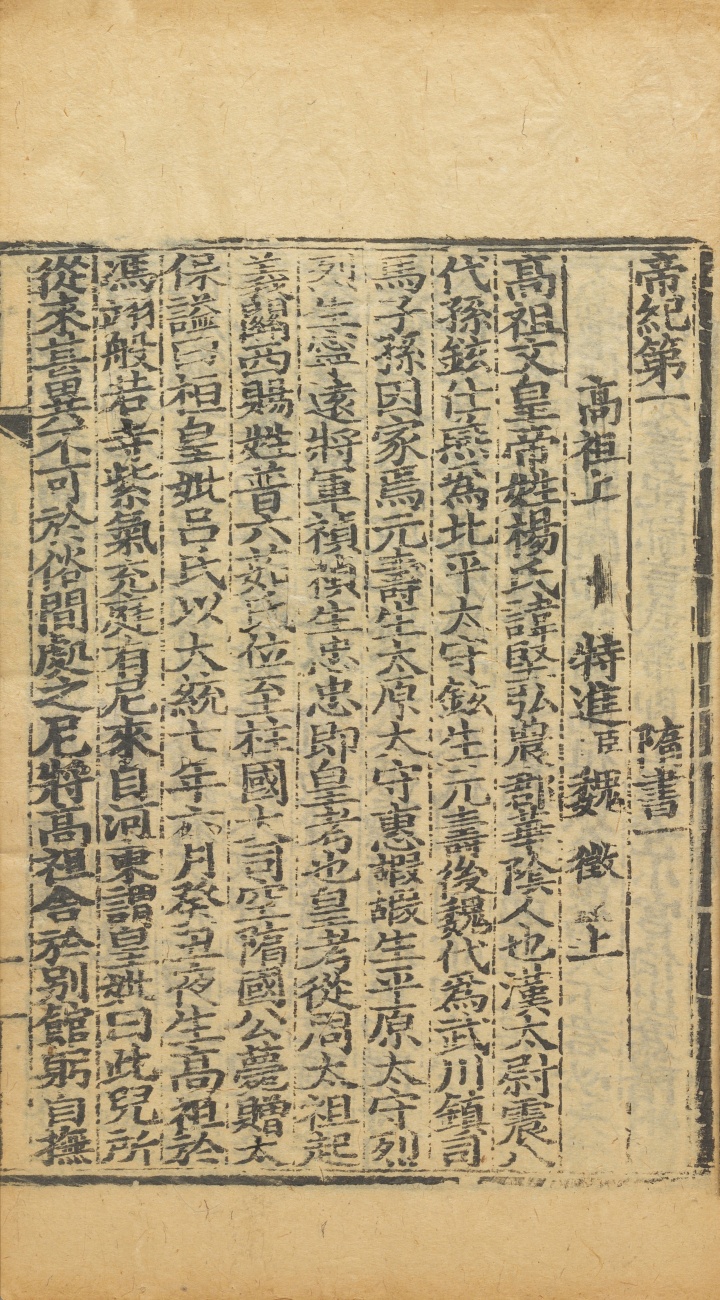 帝紀第一 隋書一
高祖上 特進臣魏徵上
高祖文皇帝姓楊氏諱堅弘農郡華陰人也漢太尉震八
代孫鉉仕燕為北平太守鉉生元壽後魏代爲武川鎮司
馬子孫因家焉元壽生太原太守惠嘏嘏生平原太守烈
烈生寧遠將軍禎禎生忠忠即皇考也皇考從周太祖起
義關西賜姓普六茹氏位至柱國大司空隋國公薨贈太
保謚曰桓皇妣吕氏以大統七年六月癸丑夜生高祖於
馮翊般若寺紫氣充庭有尼來自河東謂皇妣曰此兒所
從來甚異不可於俗間處之尼將高祖舍於别館躬自撫